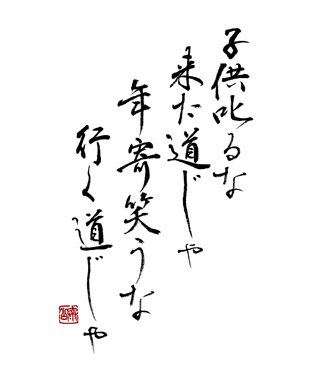 子供叱るな
来た道じゃ
年寄笑うな
行く道じゃ